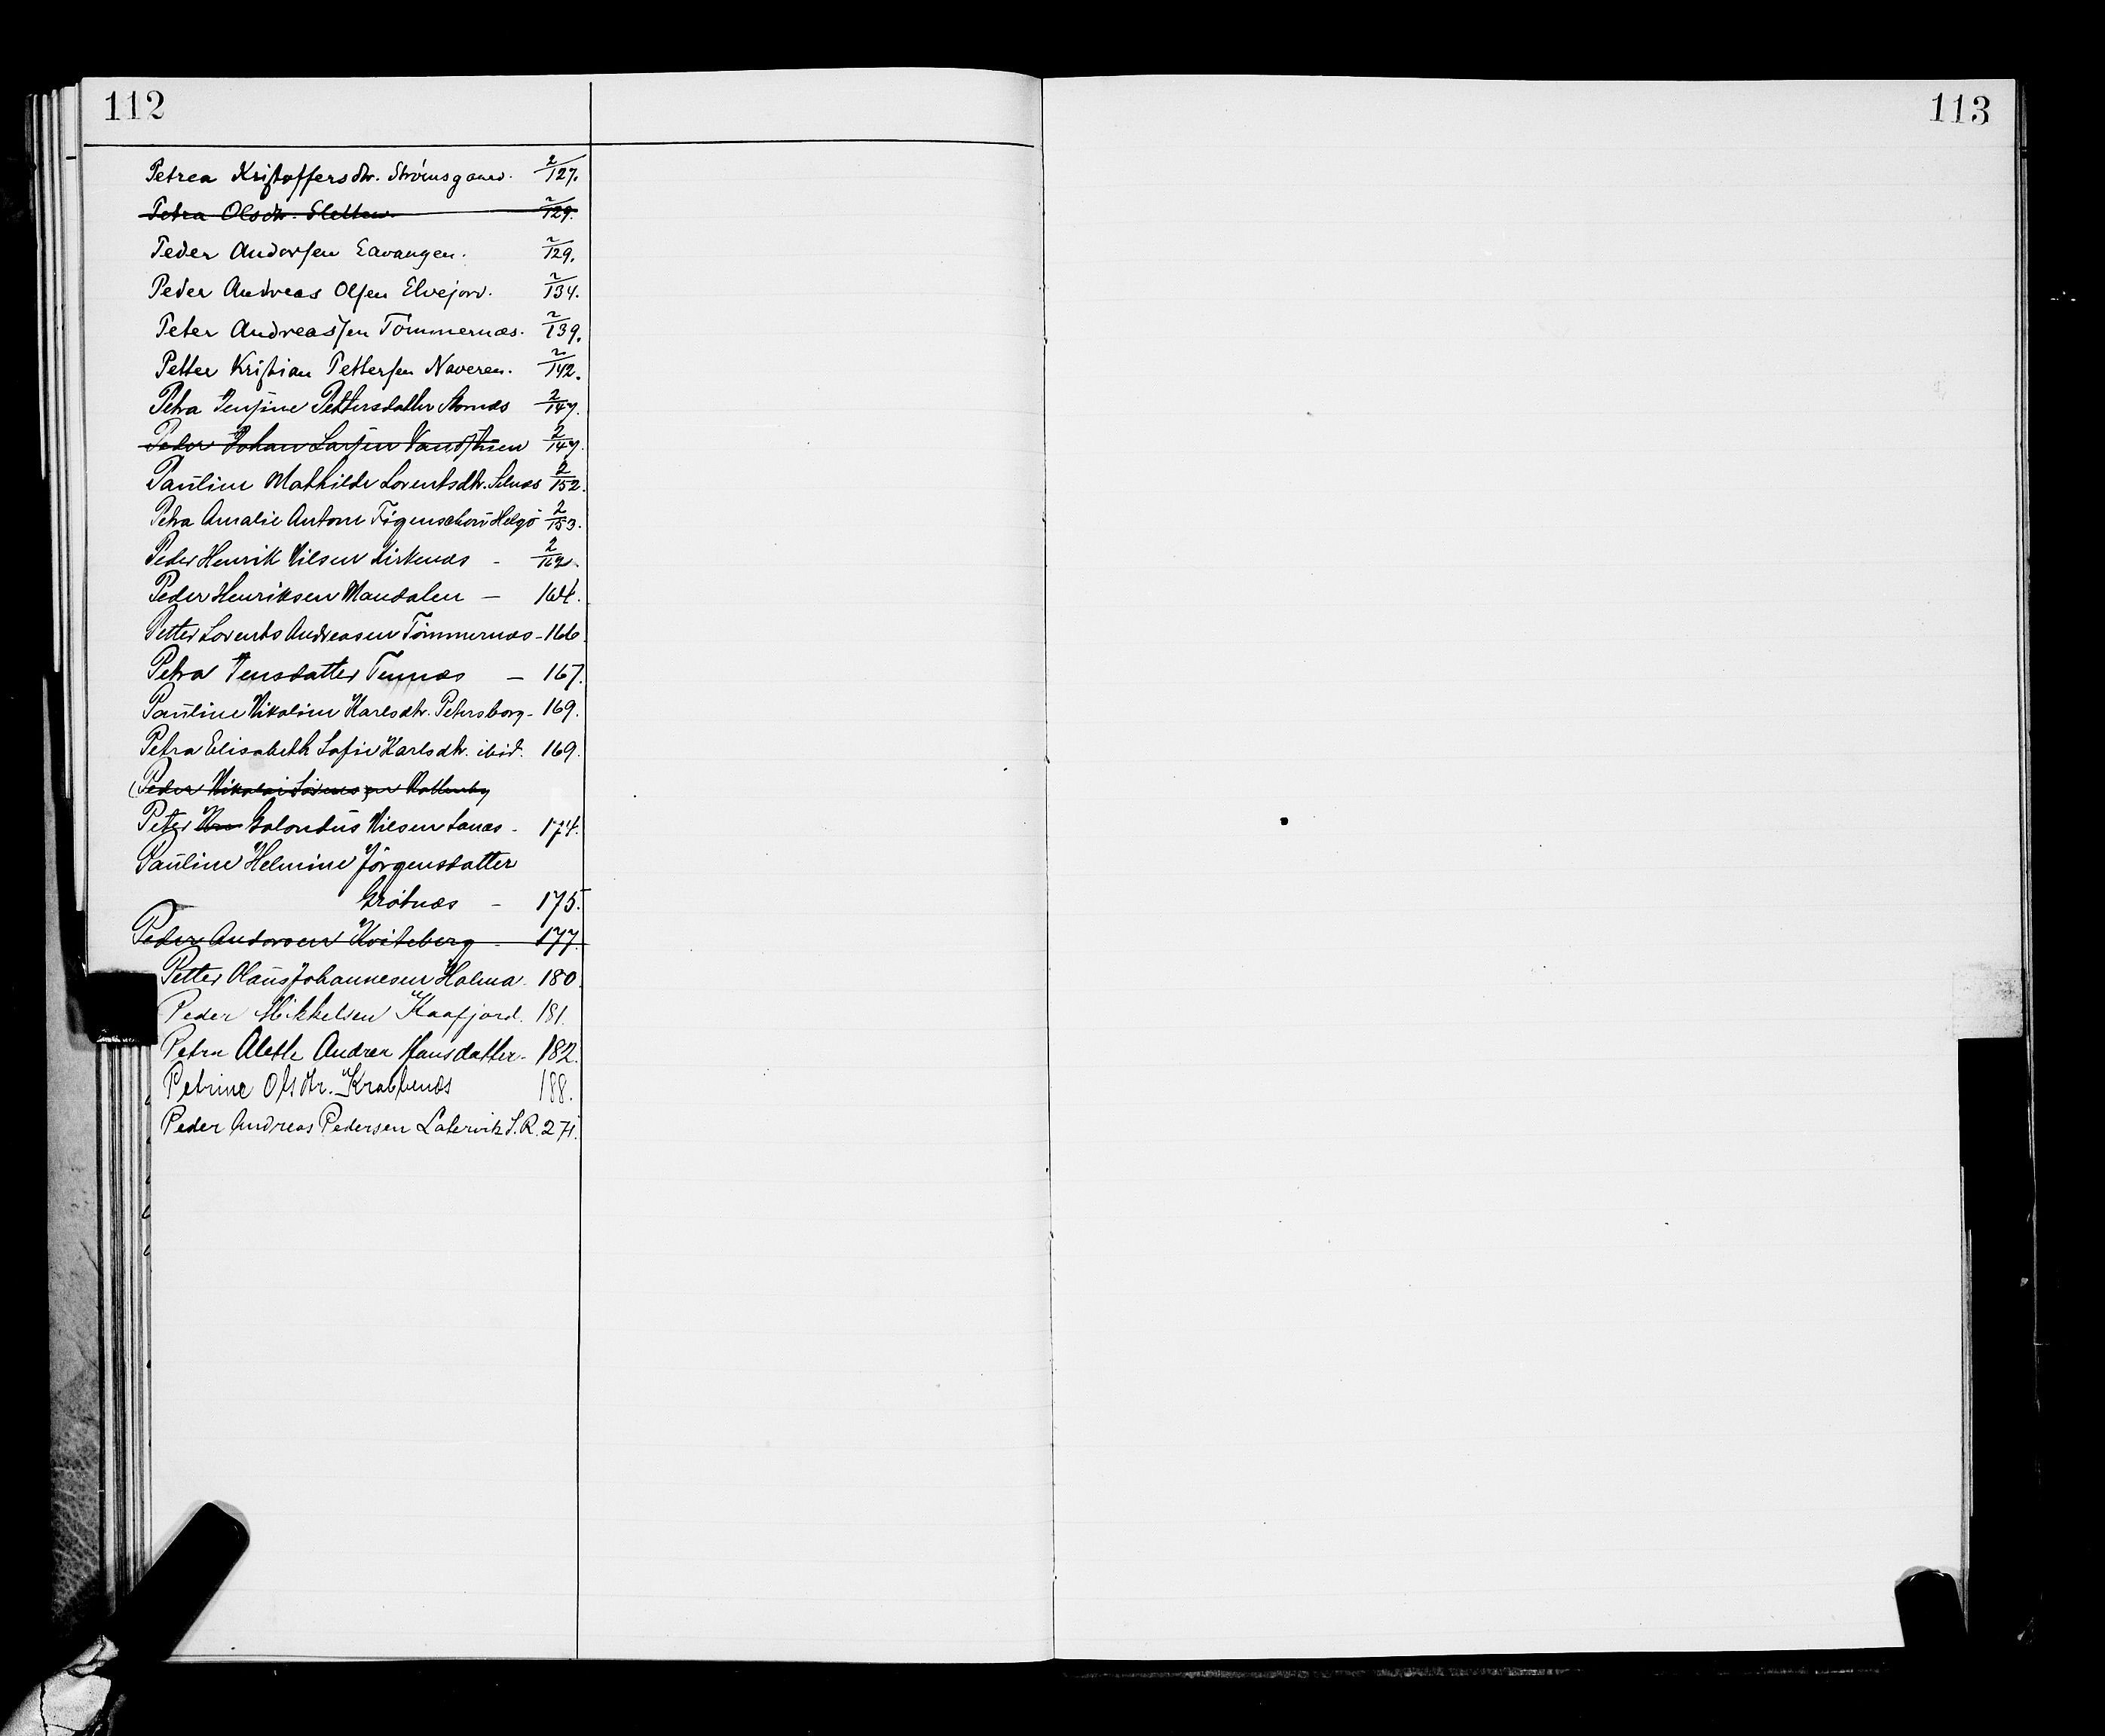 112
113
Petrea Kristoffersdtr. Strømsgaard. 2/127.
Petra Olsdtr. Sletten 2/129.
Peder Andersen Lavangen. 2/129.
Peder Andreas Olsen Elvejord. 2/134.
Peter Andreassen Tömmernæs. 2/139.
Petter Kristian Pettersen Naveren. 2/142.
Petra Jensine Pettersdatter 2/147.
Peder Johan Larsen 2/147.
Pauline Mathilde Lorentsdtr. Selnæs 2/152.
Petra Amalie Antone Figenschou Helgö 2/153.
Peder Henrik Nilsen Kirkenæs - 2/162.
Peder Henriksen Mandalen — 164.
Petter Lorents Andreasen Tömmernæs - 166.
Petra Jensdatter Tennæs — 167.
Pauline Nikoline Karlsdtr. Petersborg - 169.
Petra Elisabeth Sofie Karlsdtr. ibid. 169.
(Peder Nikolai
Peter Golondus Nilsen Sanæs - 174.
Pauline Helmine Jörgensdatter
Grötnæs - 175.
Peder Andersen Kviteberg - 177.
Petter Olaus Johannesen Holma. 180.
Peder Mikkelsen Kaafjord. 181.
Petra Alette Andrea Hansdatter - 182.
Petrine Olsdtr. Krabbenæs 188.
Peder Andreas Pedersen Latervik S.R. 271.